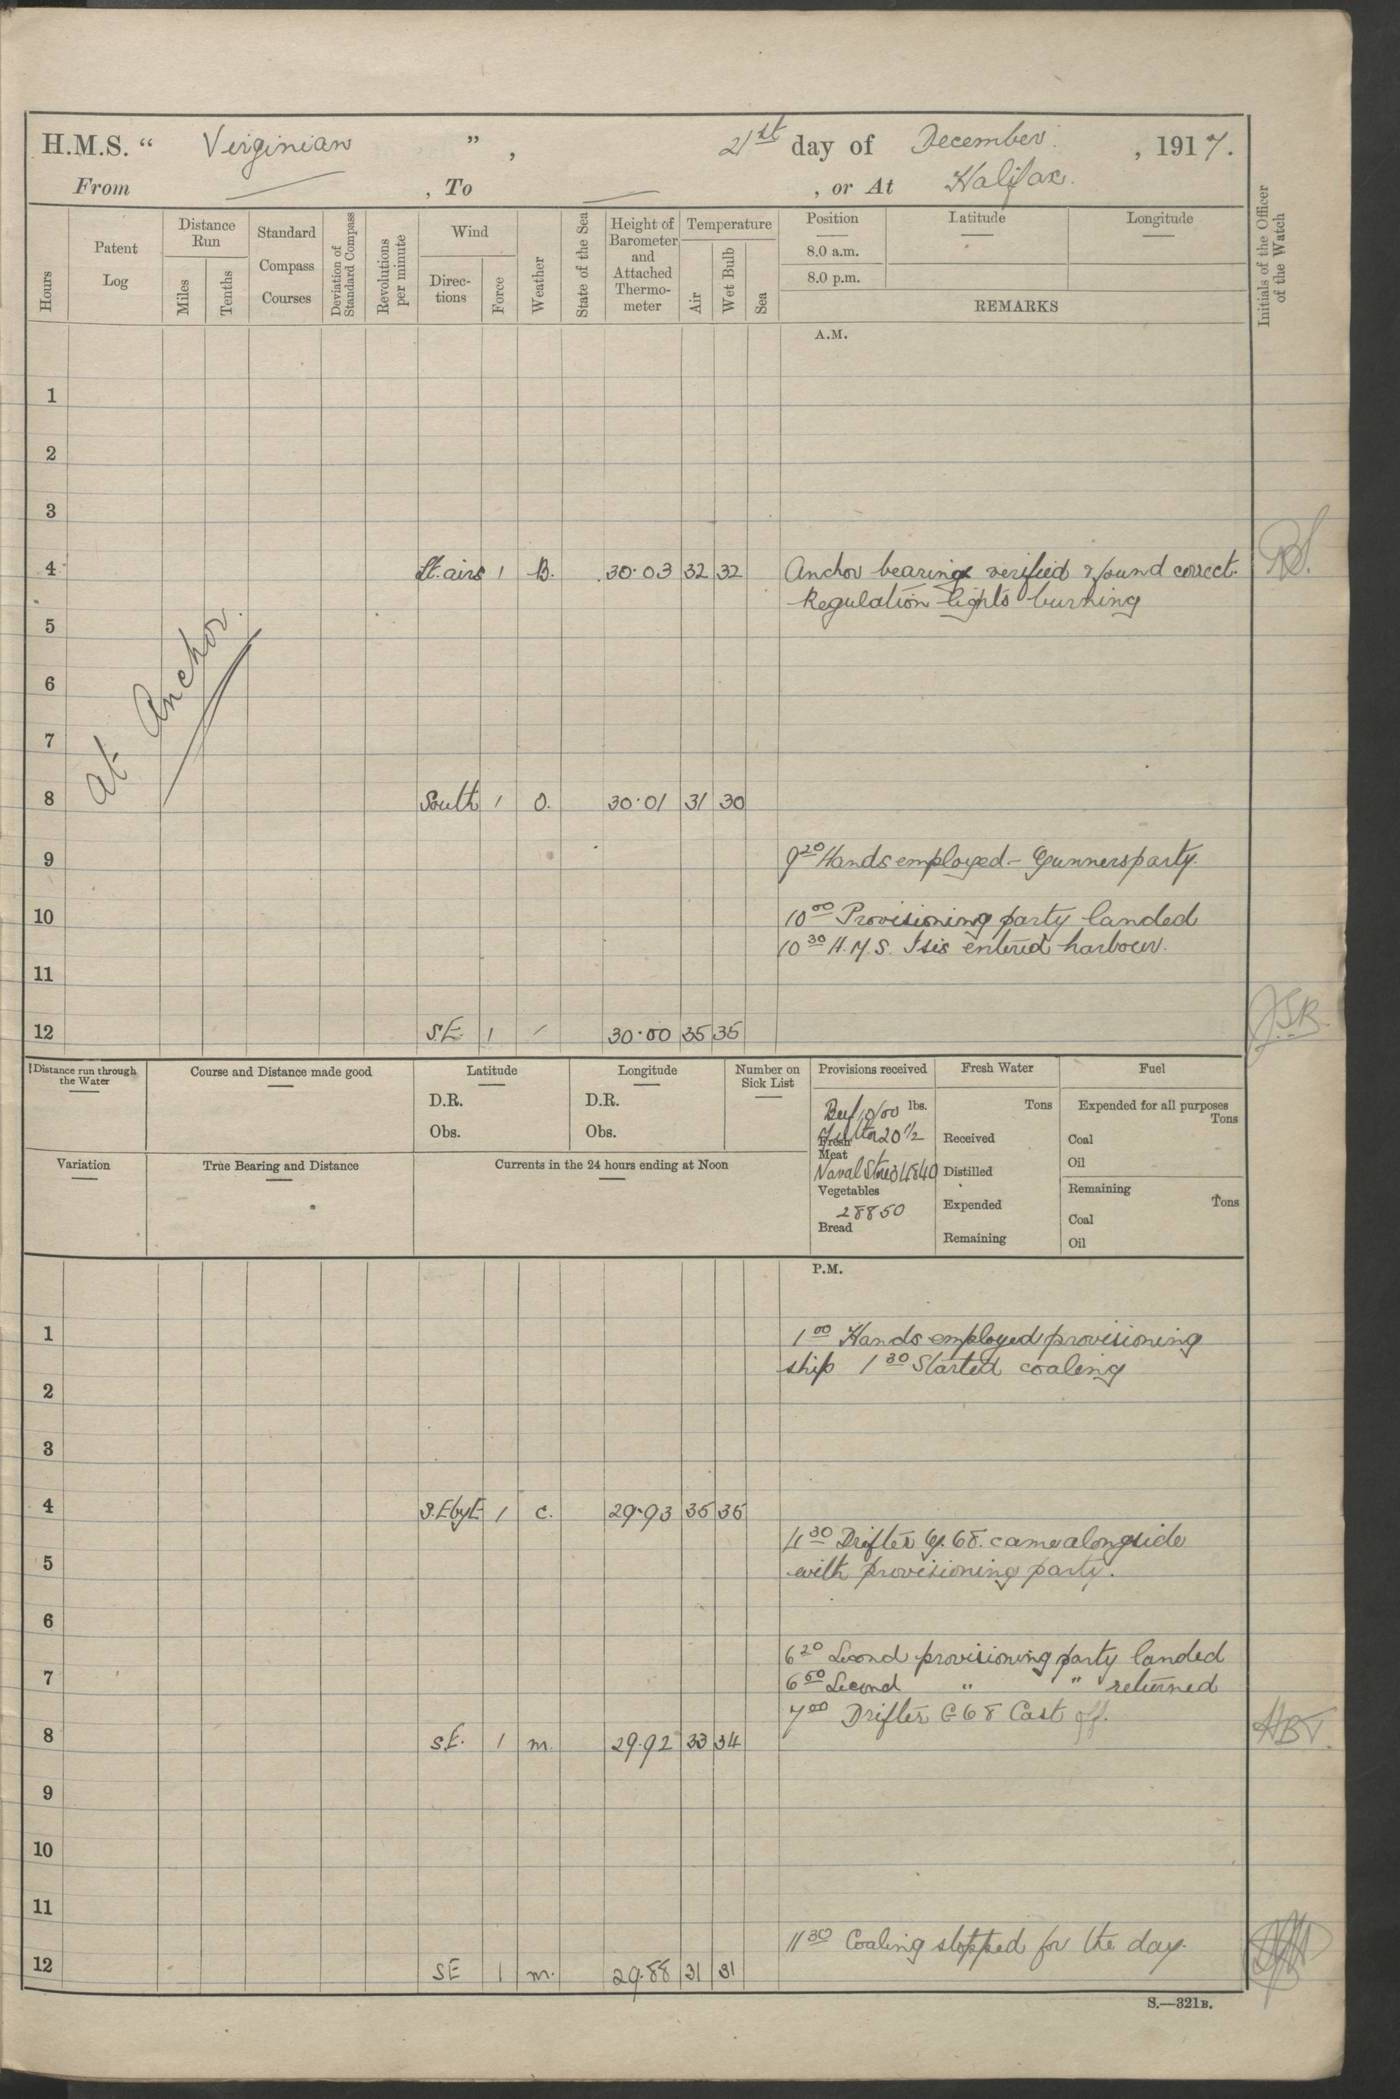 H.M.S. “ Virginian ” , 21st day of December , 1917.
From — , To — , or At Halifax.
Hours
Patent Log
Distance Run
Miles
Tenths
Standard Compass Courses
Deviation of Standard Compass
Revolutions per minute
Wind
Directions
Force
Weather
State of the Sea
Height of Barometer and Attached Thermometer
Temperature
Air
Wet Bulb
Sea
Position
8.0 a.m.
8.0 p.m.
Latitude
Longitude
REMARKS
Initials of the Officer of the Watch
A.M.
1
2
3
4 Lt. airs 1 B. 30.03 32 32 Anchor bearings verified & found correct.
Regulation lights burning
5
6
7
At Anchor.
8 South 1 O. 30.01 31 30
9 9 20 Hands employed - Gunners party.
10 10 00 Provisioning party landed
10 30 H.M.S. Isis entered harbour.
11
12 S.E. 1 / 30.00 35 35 JSB.
Distance run through the Water
Course and Distance made good
Latitude
D.R.
Obs.
Longitude
D.R.
Obs.
Number on Sick List
Variation
True Bearing and Distance
Currents in the 24 hours ending at Noon
Provisions received
Beef lbs.
20 1/2
Fresh Meat
Naval Stores 4840
Vegetables
28850
Bread
Fresh Water
Tons
Received
Distilled
Expended
Remaining
Fuel
Expended for all purposes
Tons
Coal
Oil
Remaining
Tons
Coal
Oil
P.M.
1 1 00 Hands employed provisioning
ship 1 30 Started coaling
2
3
4 S.E byE 1 c. 29.93 35 35
4 30 Drifter G. 68. came alongside
5 with provisioning party.
6
6 20 Second provisioning party landed
7 6 50 Second " " returned
7 00 Drifter G 68 Cast off.
8 S.E. 1 m. 29.92 33 34 HBT.
9
10
11
11 30 Coaling stopped for the day.
12 SE 1 m. 29.88 31 31
S.—321B.